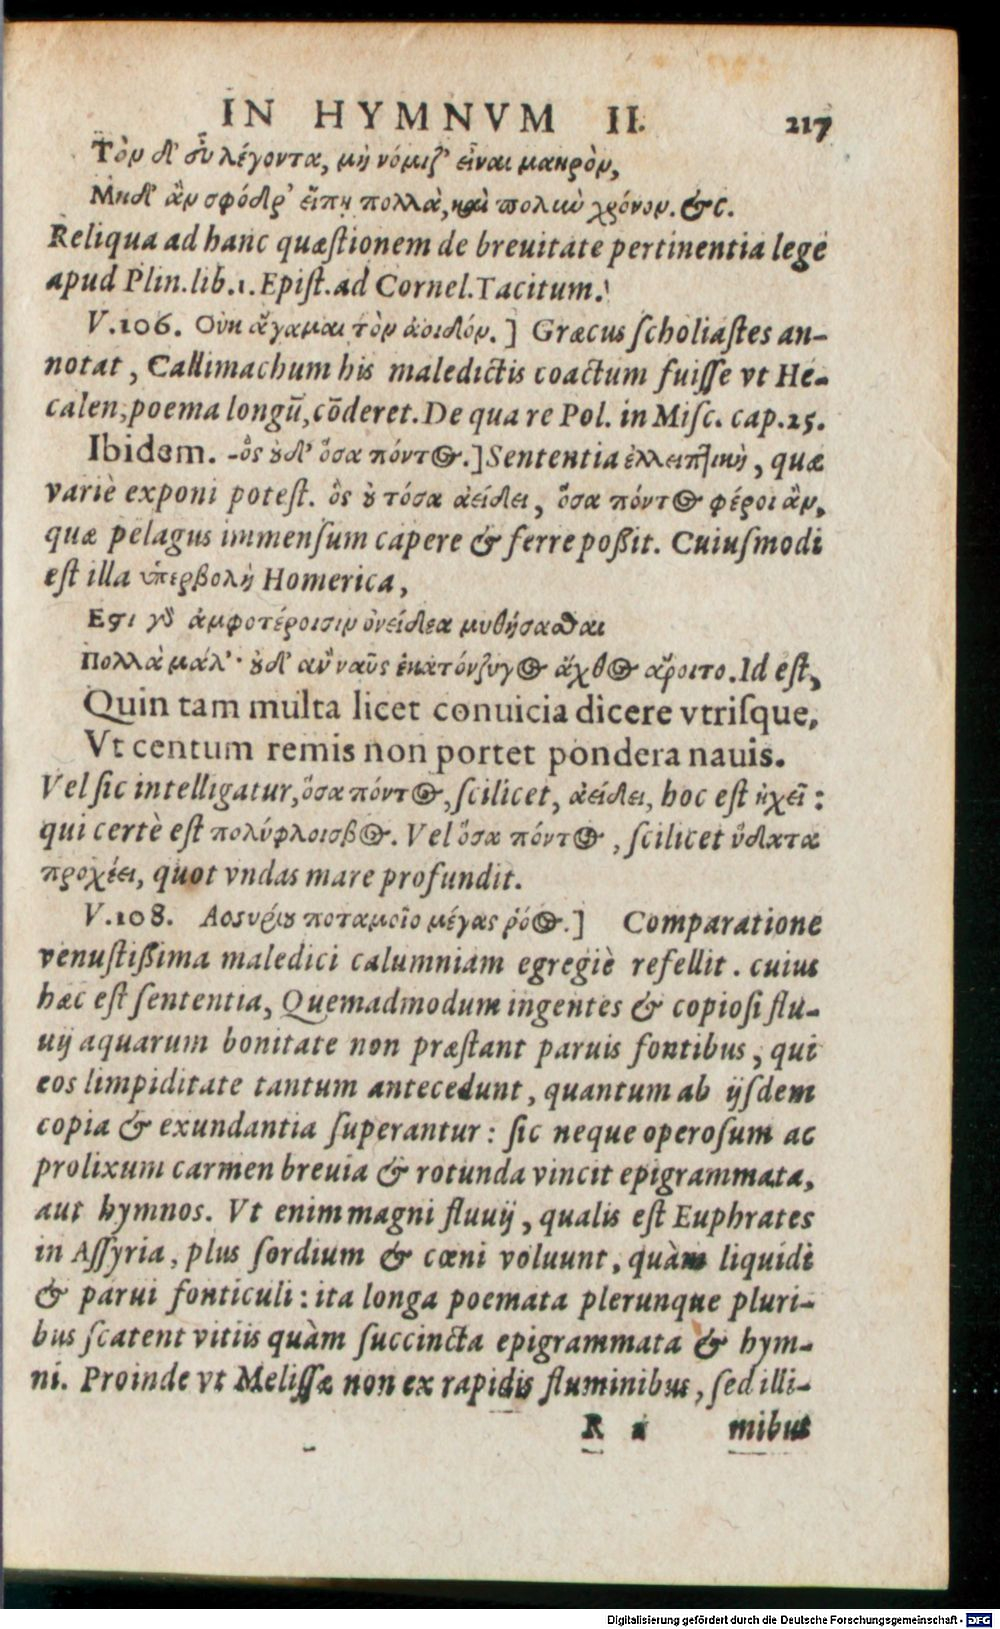 IN HYMNVM II. 217
Τὸν δ' εὖ λέγοντα, μὴ νόμιζ' εἶναι μακρὸν,
Μηδ' ἂν σφόδρ' εἴπῃ πολλὰ, καὶ πολιὺ χρόνον. &c.
Reliqua ad hanc quæſtionem de breuitate pertinentia lege
apud Plin. lib. 1. Epiſt. ad Cornel. Tacitum.
V. 106. Οὐκ ἄγαμαι τὸν ἀοιδόν. ] Græcus ſcholiaſtes an-
notat, Callimachum his maledictis coactum fuiſſe vt He-
calen, poema longū, cōderet. De qua re Pol. in Miſc. cap. 25.
Ibidem. -ὃς ȣδ' ὅσα πόντος. ] Sententia ἐλλειπτικὴ, quæ
variè exponi poteſt. ὃς ȣ τόσα ἀείδει, ὅσα πόντος φέροι ἂν,
quæ pelagus immenſum capere & ferre poßit. Cuiuſmodi
eſt illa ὑπερβολὴ Homerica,
Εστι γδ ἀμφοτέροισιν ὀνείδεα μυθήσασθαι
Πολλὰ μάλ'· ȣδ' αὖ ναῦς ἑκατόνζυγος ἄχθος ἄροιτο. Id eſt,
Quin tam multa licet conuicia dicere vtriſque,
Vt centum remis non portet pondera nauis.
Vel ſic intelligatur, ὅσα πόντος, ſcilicet, ἀείδει, hoc eſt ἠχεῖ:
qui certè eſt πολύφλοισβος. Vel ὅσα πόντος, ſcilicet ὕδατα
προχέει, quot vndas mare profundit.
V. 108. Ασσυρίȣ ποταμοῖο μέγας ῥόος. ] Comparatione
venuſtißima maledici calumniam egregiè refellit. cuius
hæc eſt ſententia, Quemadmodum ingentes & copioſi flu-
uij aquarum bonitate non præſtant paruis fontibus, qui
eos limpiditate tantum antecedunt, quantum ab ijſdem
copia & exundantia ſuperantur: ſic neque operoſum ac
prolixum carmen breuia & rotunda vincit epigrammata,
aut hymnos. Vt enim magni fluuij, qualis eſt Euphrates
in Aſſyria, plus ſordium & cœni voluunt, quàm liquidi
& parui fonticuli: ita longa poemata plerunque pluri-
bus ſcatent vitiis quàm ſuccincta epigrammata & hym-
ni. Proinde vt Meliſſæ non ex rapidis fluminibus, ſed illi-
R mibus
Digitalisierung gefördert durch die Deutsche Forschungsgemeinschaft - DFG